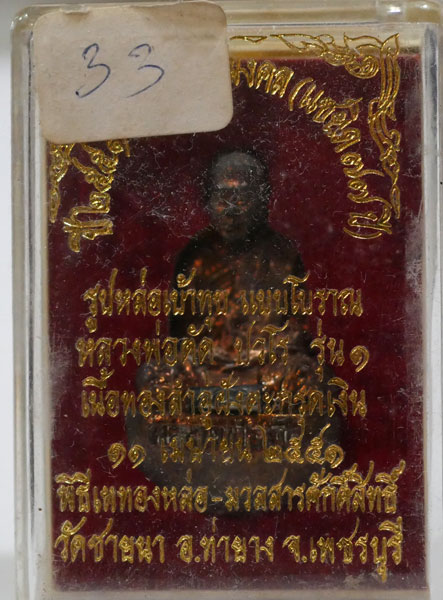 33
มงคล (แซยิด ๗๗ ปี)
รูปหล่อเบ้าทุบ แบบโบราณ
หลวงพ่อตัด ปวโร รุ่น ๑
เนื้อทองลำอู่ฝังตะกรุดเงิน
๑๑ เมษายน ๒๕๕๑
พิธีเททองหล่อ-มวลสารศักดิ์สิทธิ์
วัดชายนา อ.ท่ายาง จ.เพชรบุรี